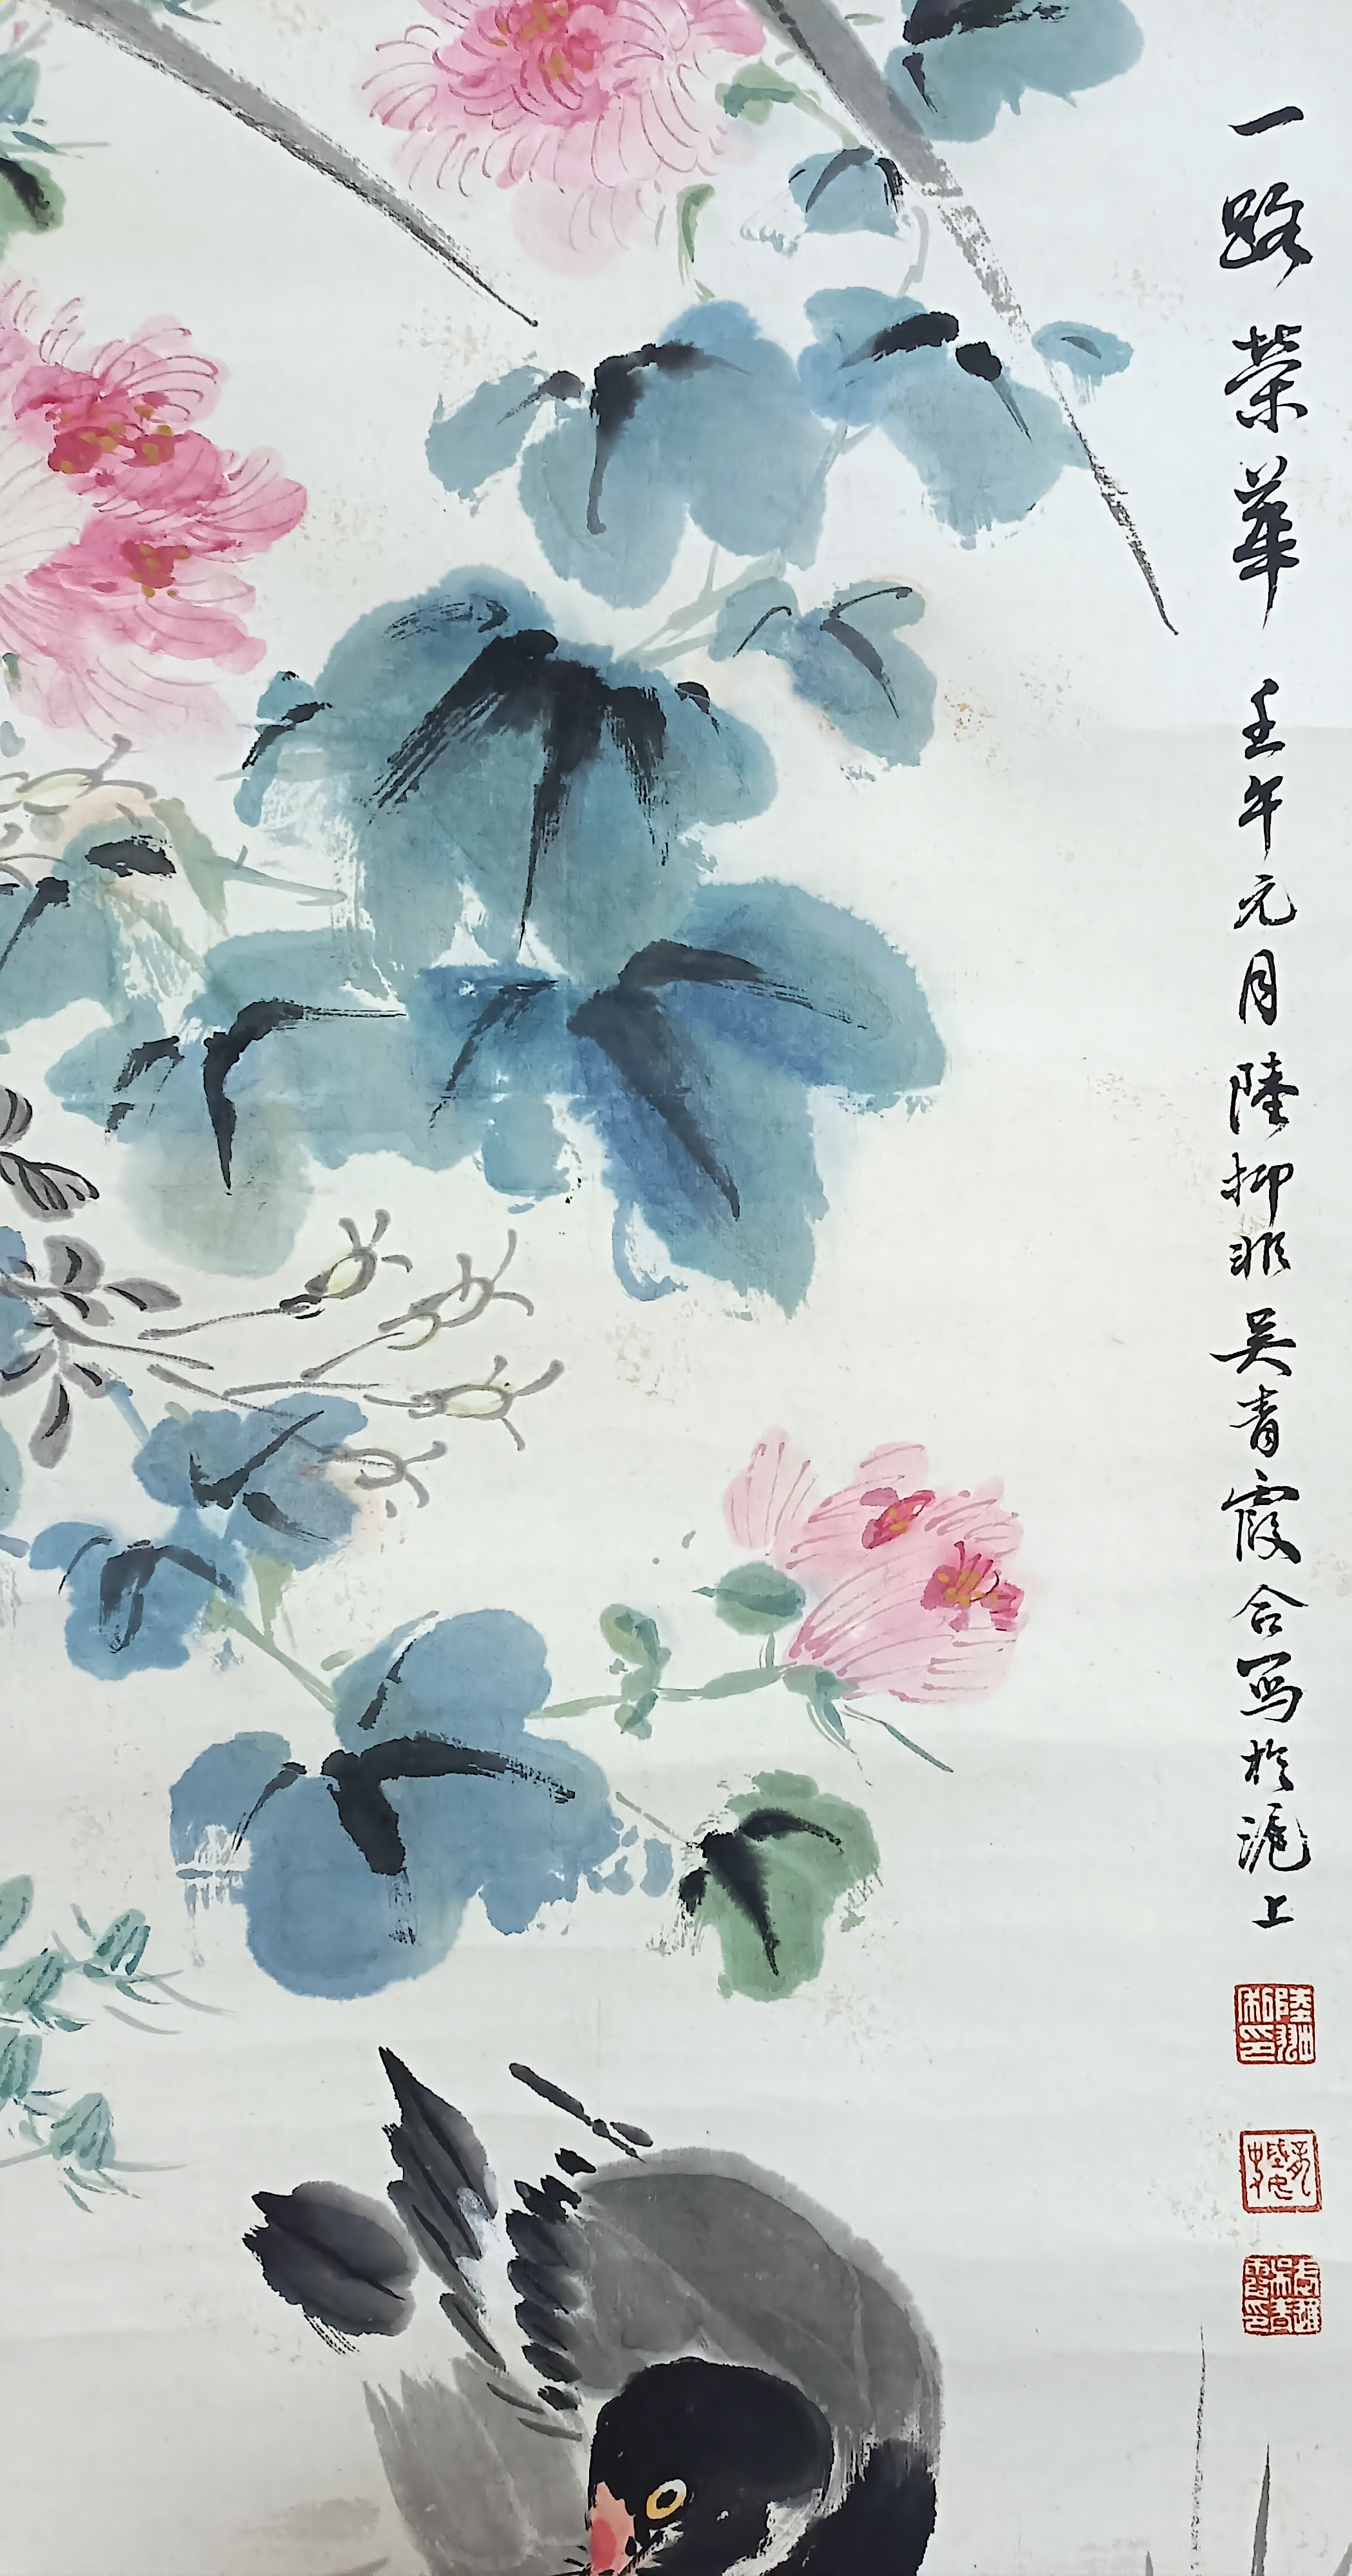 一路榮華 壬午元月陸抑非吴青霞合写於滬上